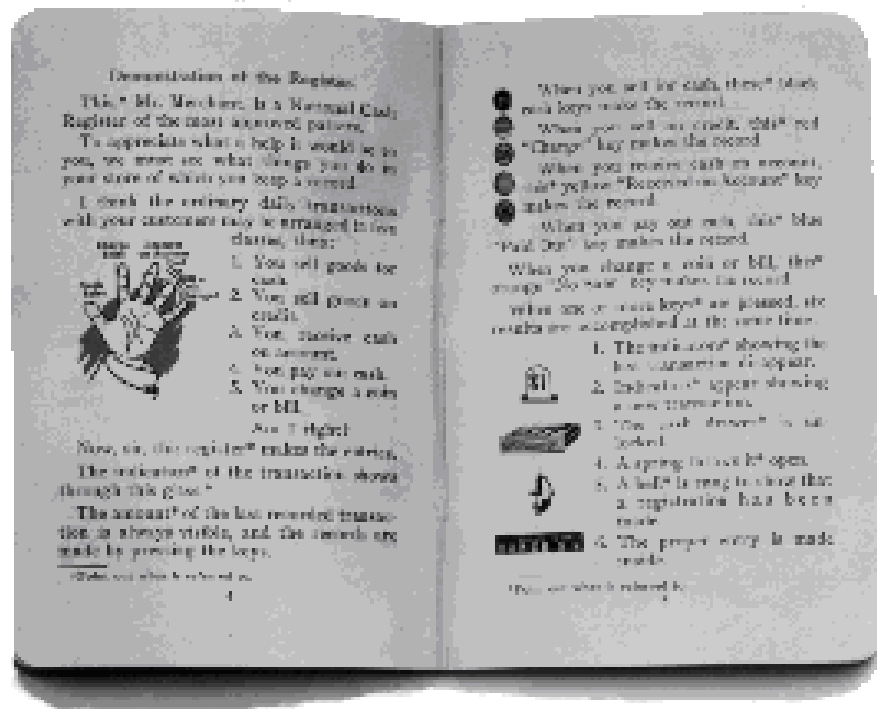 Demonstration of the Register.
This,* Mr. Merchant, is a National Cash
Register of the most approved pattern.
To appreciate what a help it would be to
you, we must see what things you do in
your store of which you keep a record.
I think the ordinary daily transactions
with your customers may be arranged in five
classes, thus:
1. You sell goods for
cash.
2. You sell goods on
credit.
3. You receive cash
on account.
4. You pay out cash.
5. You change a coin
or bill.
Am I right?
Now, sir, this register* makes the entries.
The indication* of the transaction shows
through this glass.*
The amount* of the last recorded transac-
tion is always visible, and the records are
made by pressing the keys.
*Point out what is referred to.
4
When you sell for cash, these* black
cash keys make the record.
When you sell on credit, this* red
"Charge" key makes the record.
When you receive cash on account,
this* yellow "Received on Account" key
makes the record.
When you pay out cash, this* blue
"Paid Out" key makes the record.
When you change a coin or bill, this*
orange "No Sale" key makes the record.
When one or more keys* are pressed, six
results are accomplished at the same time.
1. The indicators* showing the
last transaction disappear.
2. Indicators* appear showing
a new transaction.
3. The cash drawer* is un-
locked.
4. A spring throws it* open.
5. A bell* is rung to show that
a registration has been
made.
6. The proper entry is made
inside.
*Point out what is referred to.